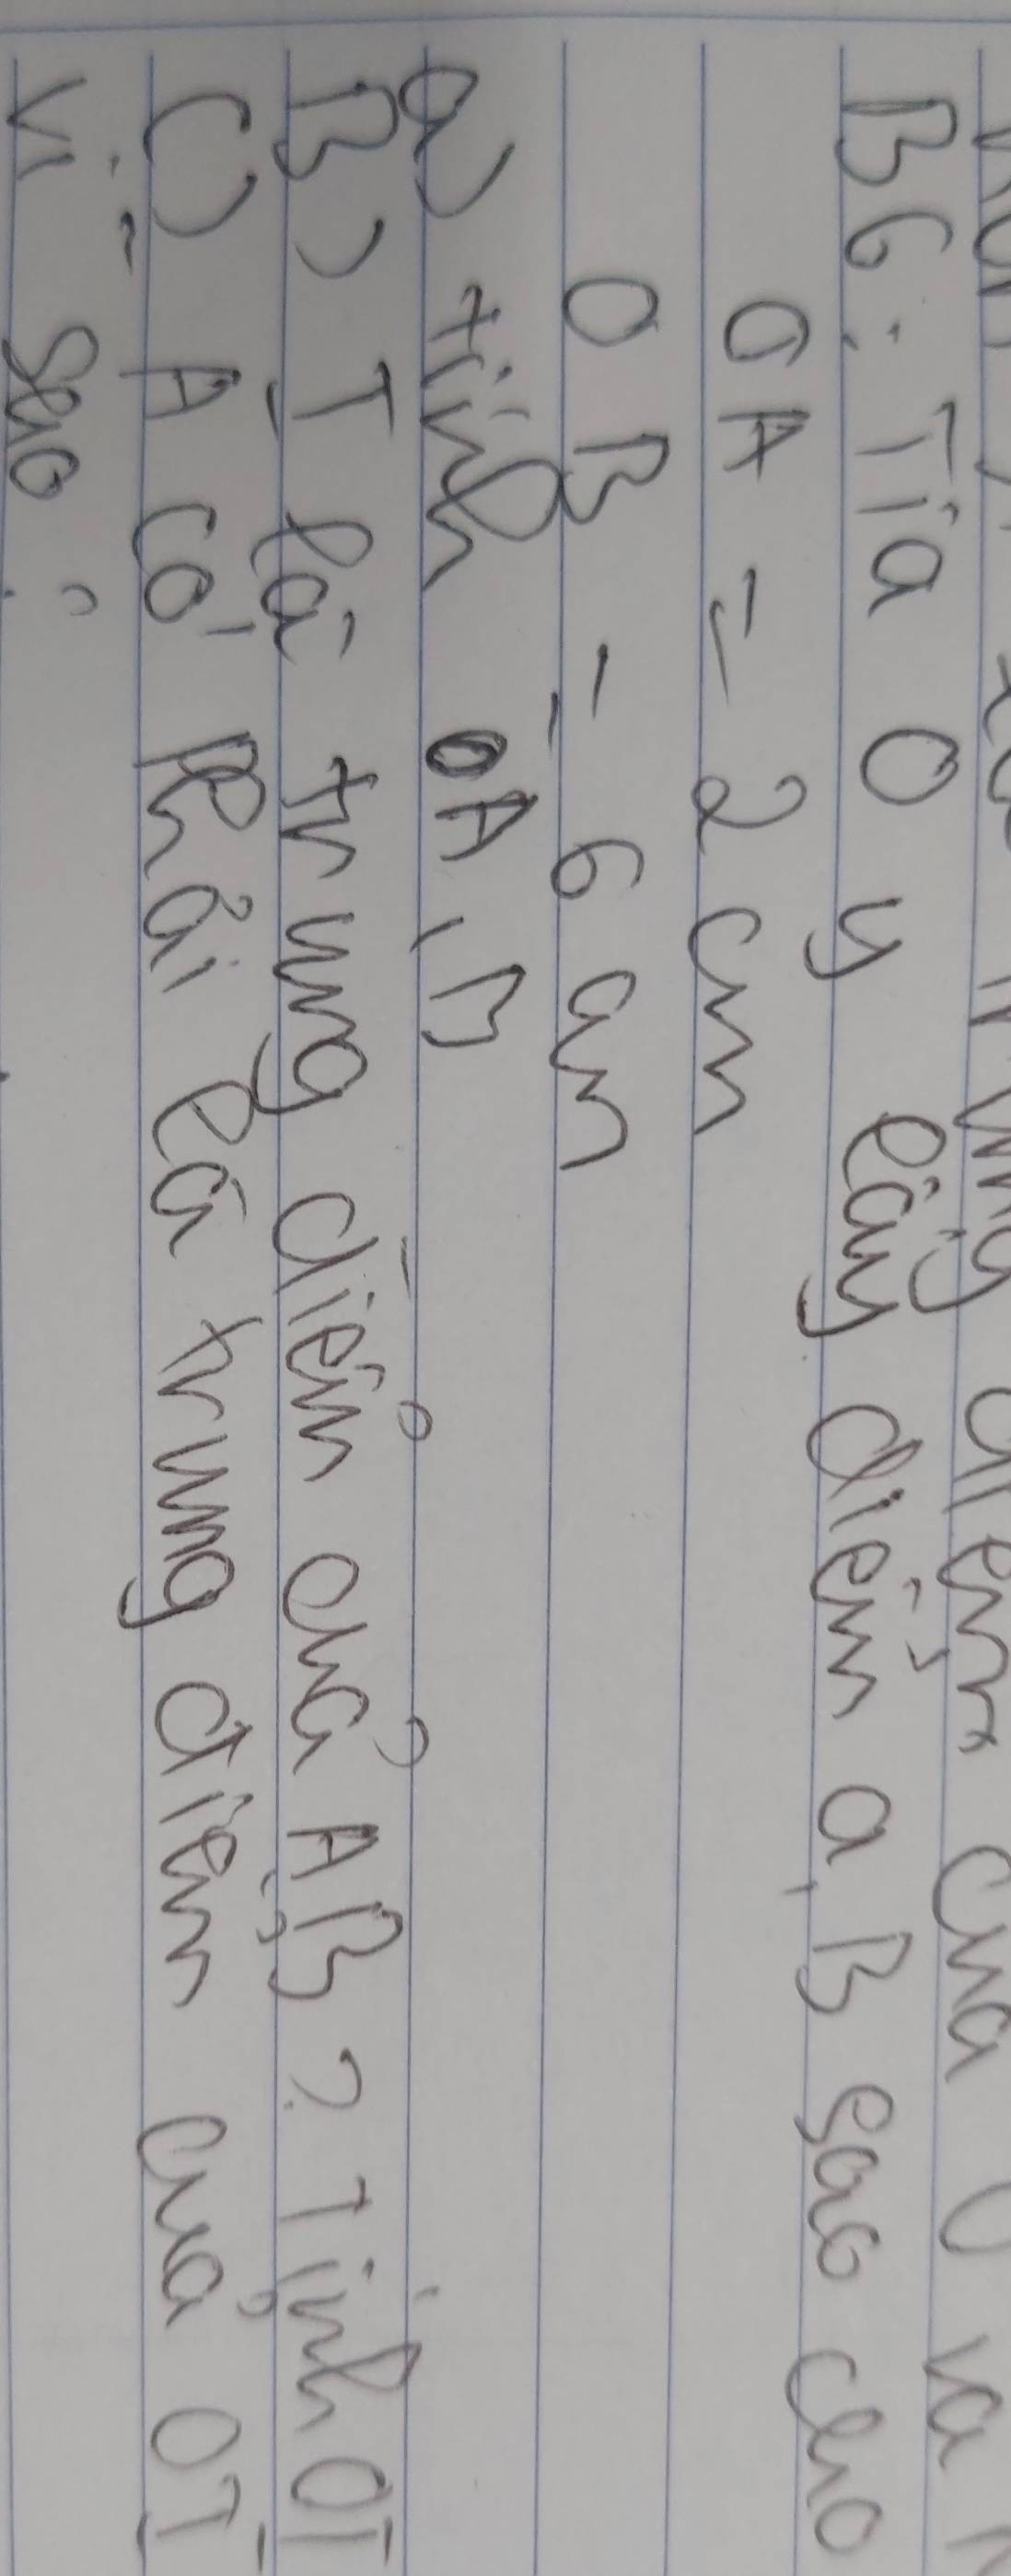 trung điểm của
B6: Tia Oy lấy điểm a, B sao cho
OA = 2 cm
OB = 6 cm
a) tính A, B
B) I là trung điểm của AB? Tính OI
C) A có phải là trung điểm của OI
Vì sao?